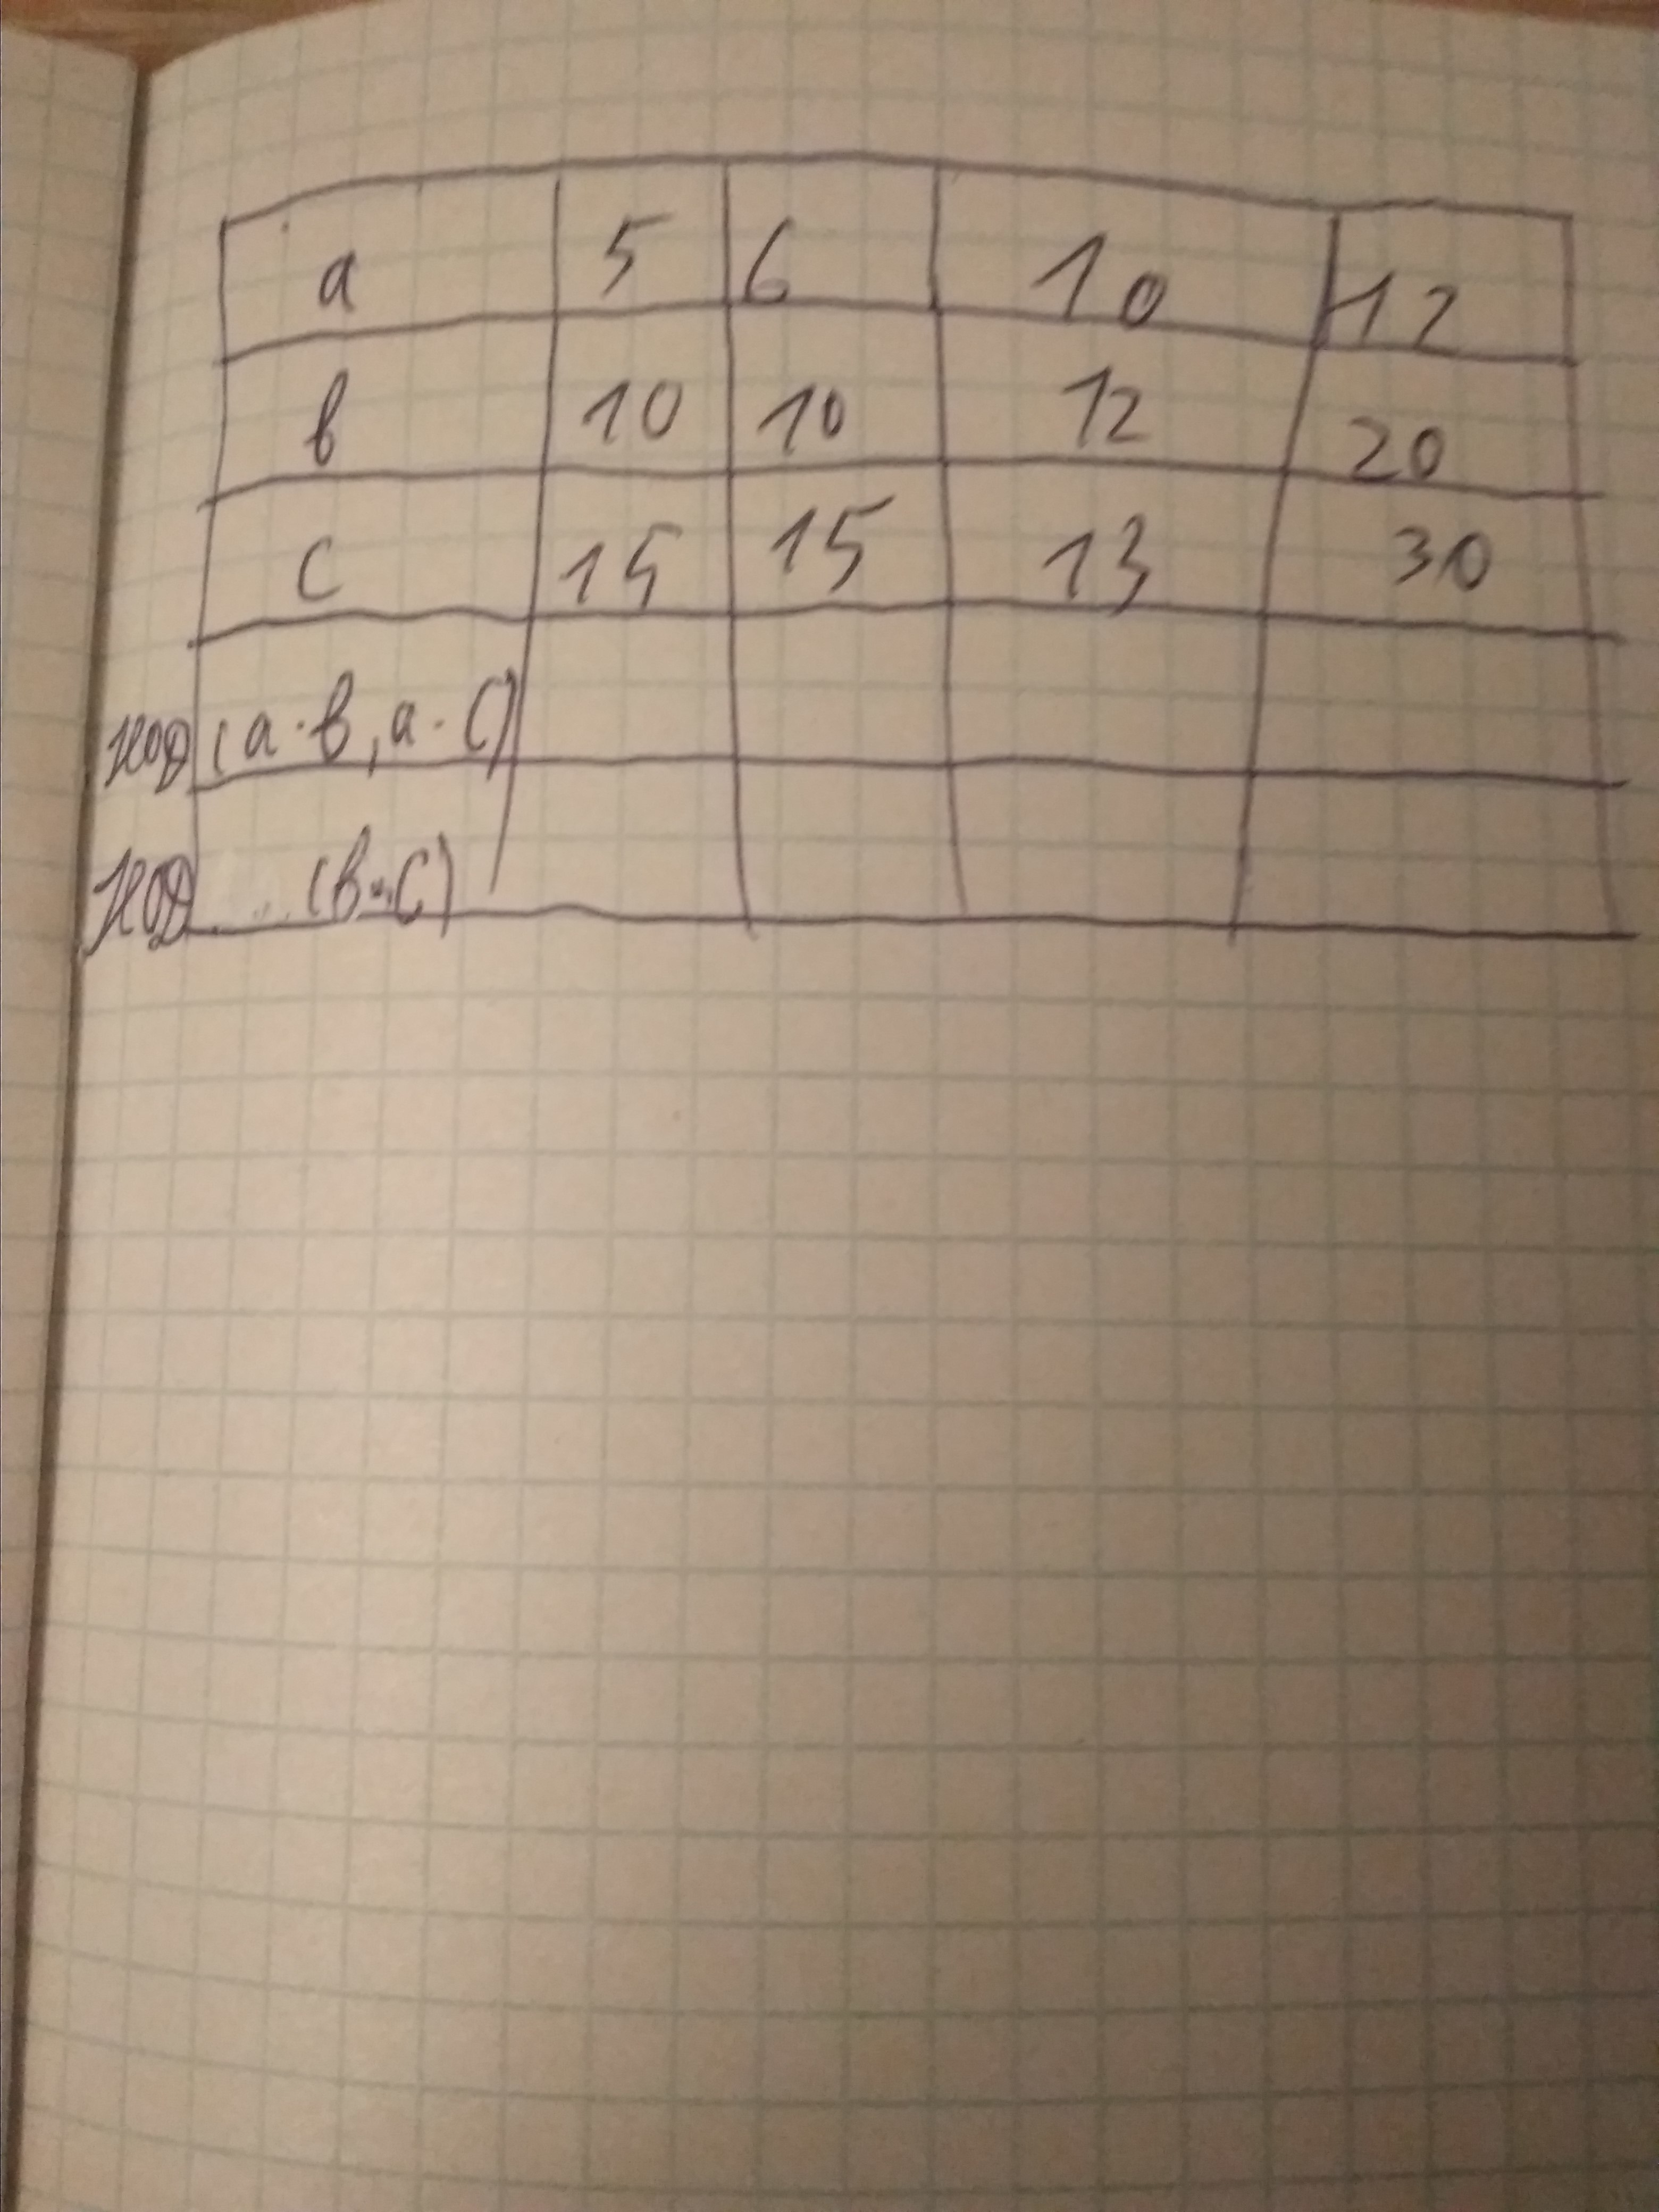 а 5 6 10 12
в 10 10 12 20
с 15 15 13 30
НОД (а·в, а·с)
НОД (в·с)